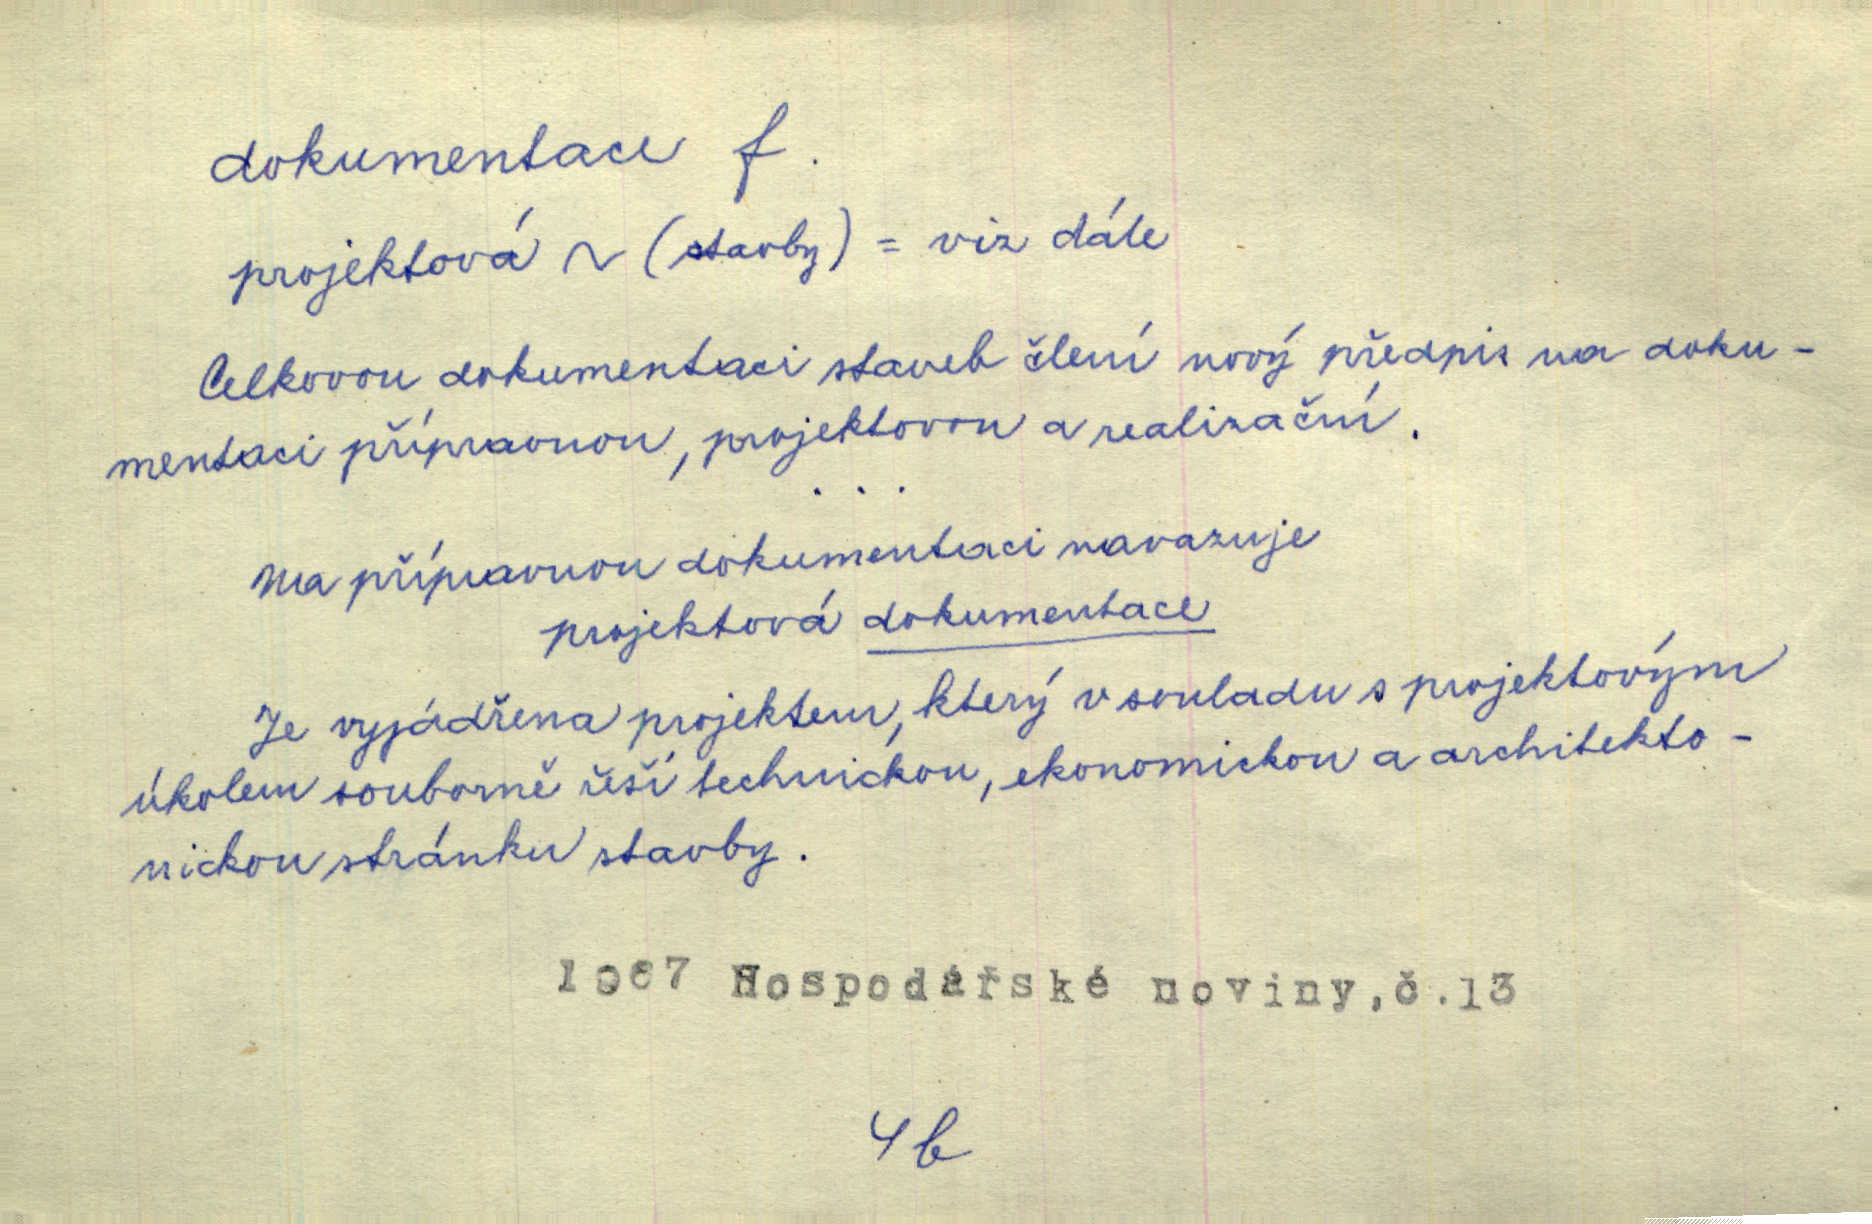 dokumentace f.
projektová ~ (stavby) = viz dále
Celkovou dokumentaci staveb člení nový předpis na doku-
mentaci přípravnou, projektovou a realizační.
. . .
Na přípravnou dokumentaci navazuje
projektová dokumentace
Je vyjádřena projektem, který v souladu s projektovým
úkolem souborně řeší technickou, ekonomickou a architekto-
nickou stránku stavby.
1967 Hospodářské noviny,č.13
4b